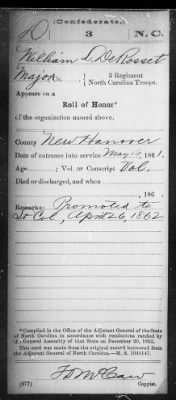 (Confederate.)
D 3 N.C.
William L. DeRosset
Major, 3 Regiment
North Carolina Troops.
Appears on a
Roll of Honor*
of the organization named above.
County New Hanover
Date of entrance into service May 16, 1861.
Age ; Vol. or Conscript Vol.
Died or discharged, and when
, 186 .
Remarks: Promoted to
Lt Col, April 26, 1862
*Compiled in the Office of the Adjutant General of the State
of North Carolina in accordance with resolutions ratified by
the General Assembly of that State on December 20, 1862.
This card was made from the original record borrowed from
the Adjutant General of North Carolina.—M. S. 1041147.
McCaw
(677) Copyist.